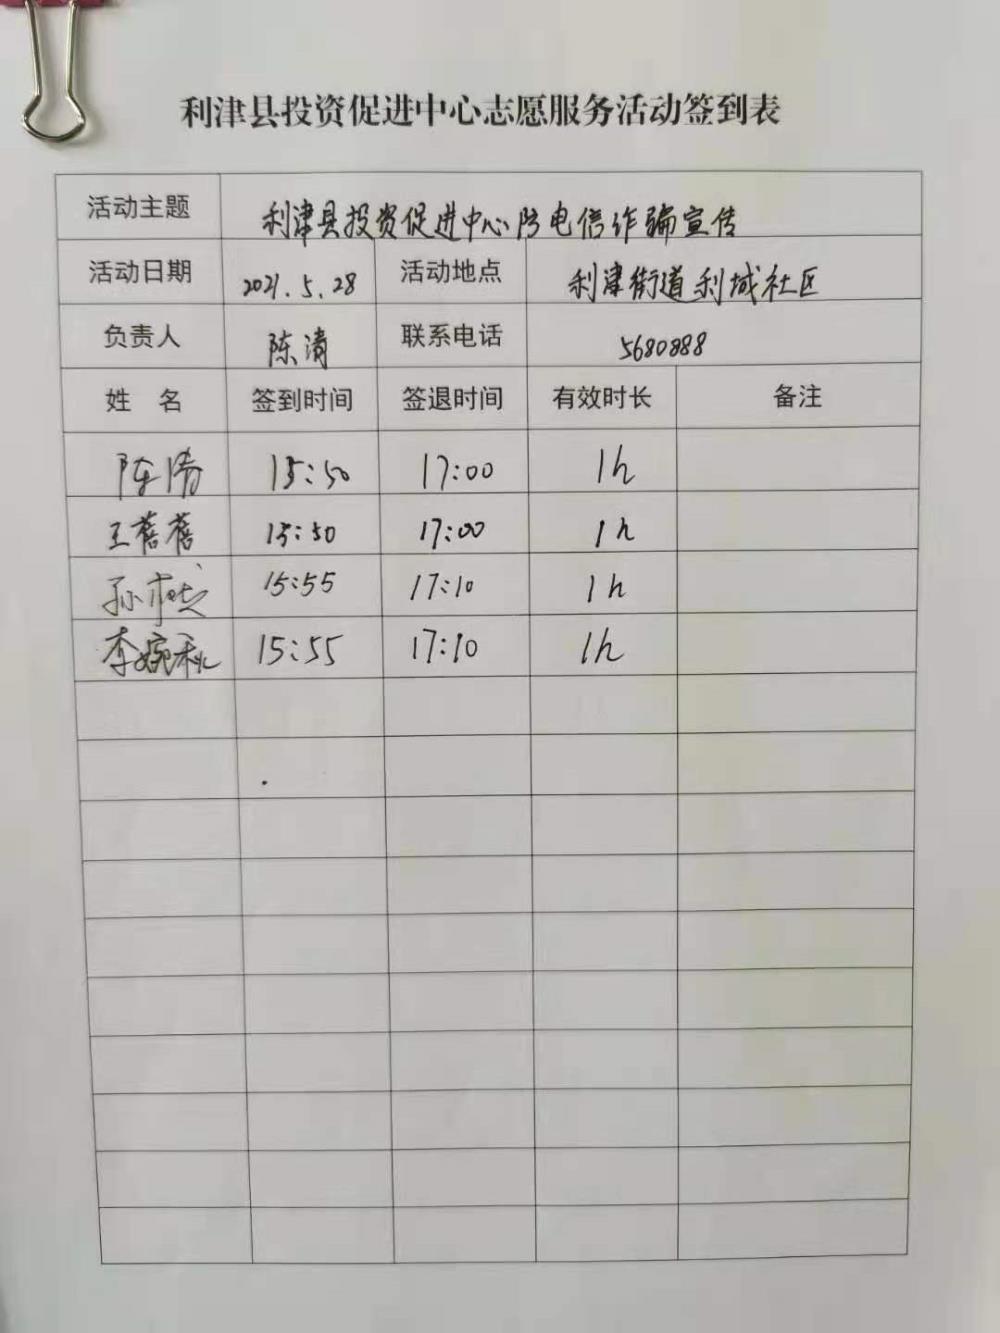 利津县投资促进中心志愿服务活动签到表
活动主题 利津县投资促进中心防电信诈骗宣传
活动日期 2021.5.28 活动地点 利津街道利城社区
负责人 陈清 联系电话 5680888
姓 名 签到时间 签退时间 有效时长 备注
陈清 15:50 17:00 1h
王蓓蓓 15:50 17:00 1h
孙 15:55 17:10 1h
李婉秋 15:55 17:10 1h